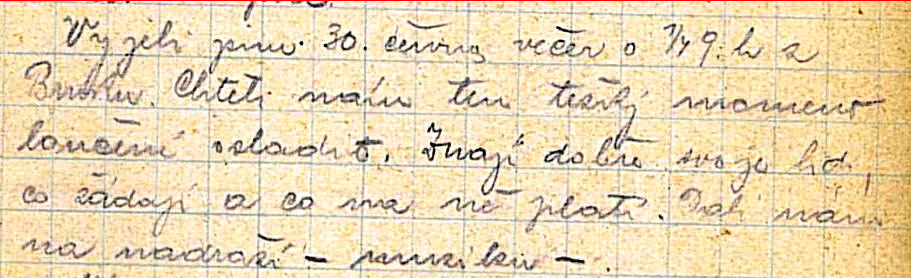 Vyjeli jsme 30. června večer o 1/4 9. h z
Bruku. Chtěli nám ten těžký moment
loučení osladit. Znají dobře svoje lidi,
co žádají a co na ně platí. Dali nám
na nádraží – muziku –.